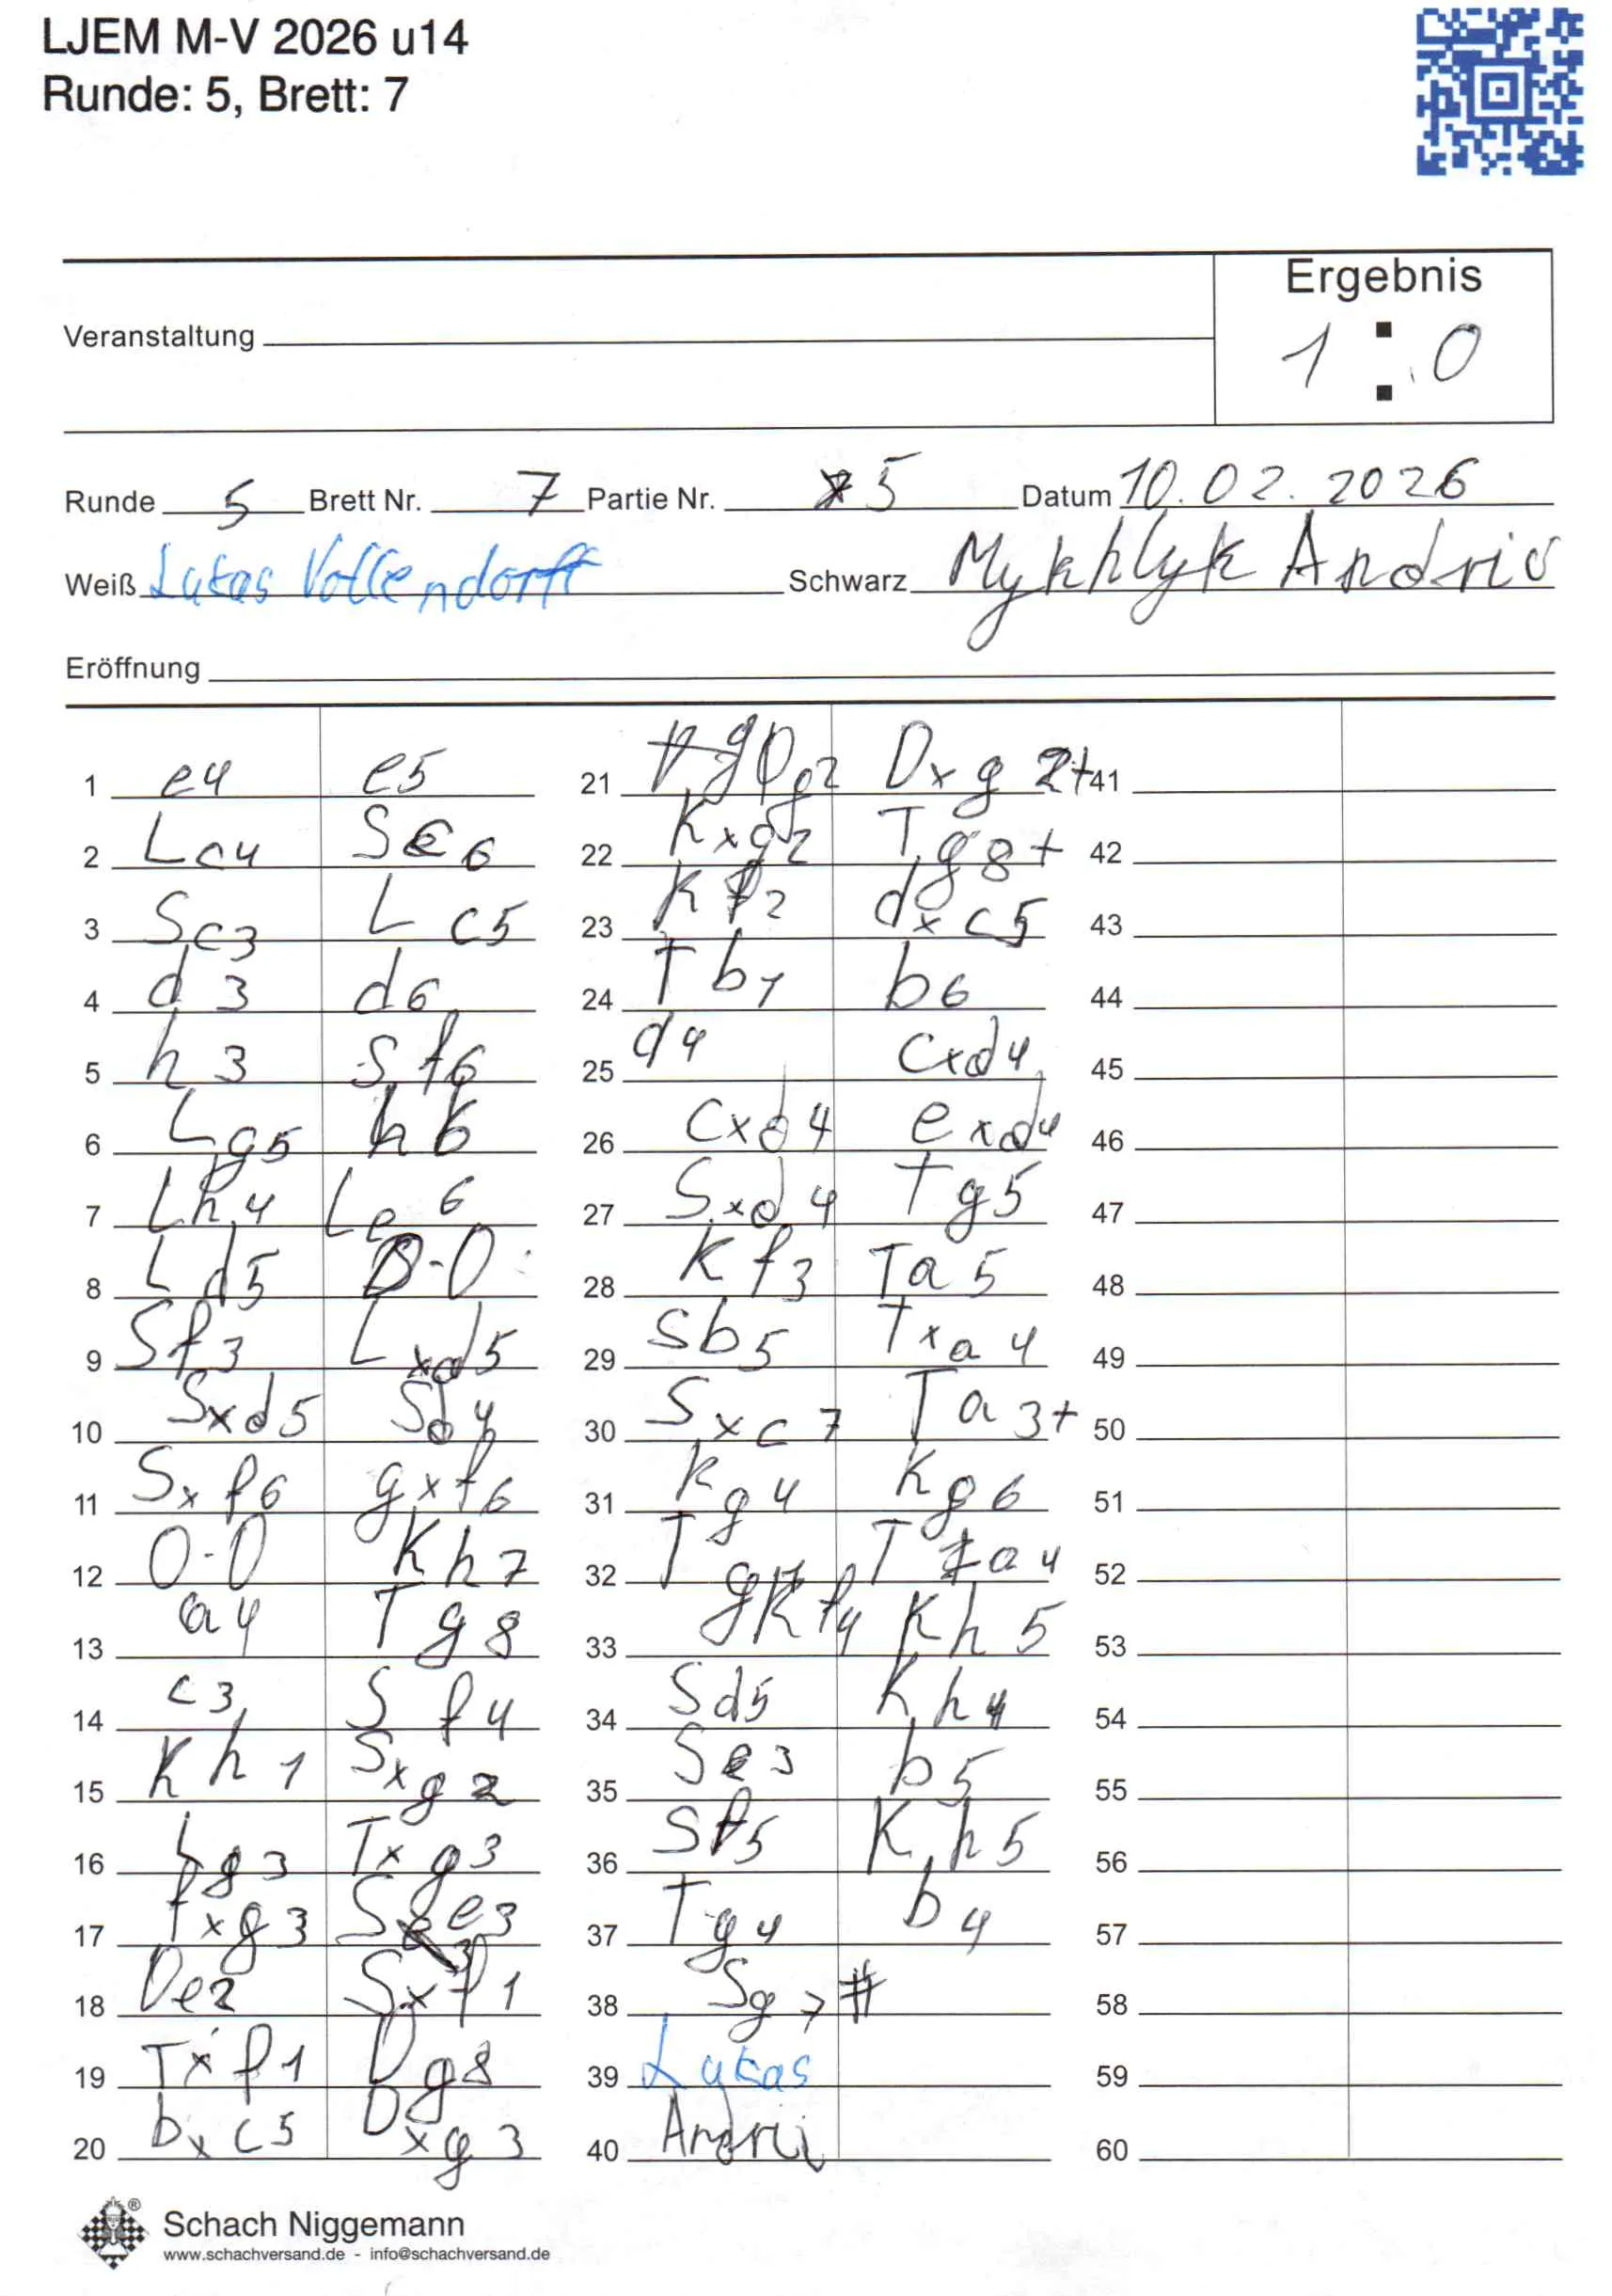 LJEM M-V 2026 u14
Runde: 5, Brett: 7
Ergebnis
Veranstaltung
1 : 0
Runde 5 Brett Nr. 7 Partie Nr. 5 Datum 10.02.2026
Weiß Lukas Vollendorff Schwarz Mykhlyk Andrii
Eröffnung
1 e4 e5
2 Lc4 Sc6
3 Sc3 Lc5
4 d3 d6
5 h3 Sf6
6 Lg5 h6
7 Lh4 Le6
8 Ld5 0-0
9 Sf3 Lxd5
10 Sxd5 Sd4
11 Sxf6 gxf6
12 0-0 Kh7
13 a4 Tg8
14 c3 Sf4
15 Kh1 Sxg2
16 Lg3 Txg3
17 fxg3 Se3
18 De2 Sxf1
19 Txf1 Dg8
20 bxc5 Dxg3
21 Dg2 Dxg2+
22 Kxg2 Tg8+
23 Kf2 dxc5
24 Tb1 b6
25 d4 cxd4
26 cxd4 exd4
27 Sxd4 Tg5
28 Kf3 Ta5
29 Sb5 Txa4
30 Sxc7 Ta3+
31 Kg4 Kg6
32 Tg1 Ta4
33 Kf4 Kh5
34 Sd5 Kh4
35 Se3 b5
36 Sf5 Kh5
37 Tg4 b4
38 Sg7#
39 Lukas
40 Andrii
41
42
43
44
45
46
47
48
49
50
51
52
53
54
55
56
57
58
59
60
Schach Niggemann
www.schachversand.de - info@schachversand.de